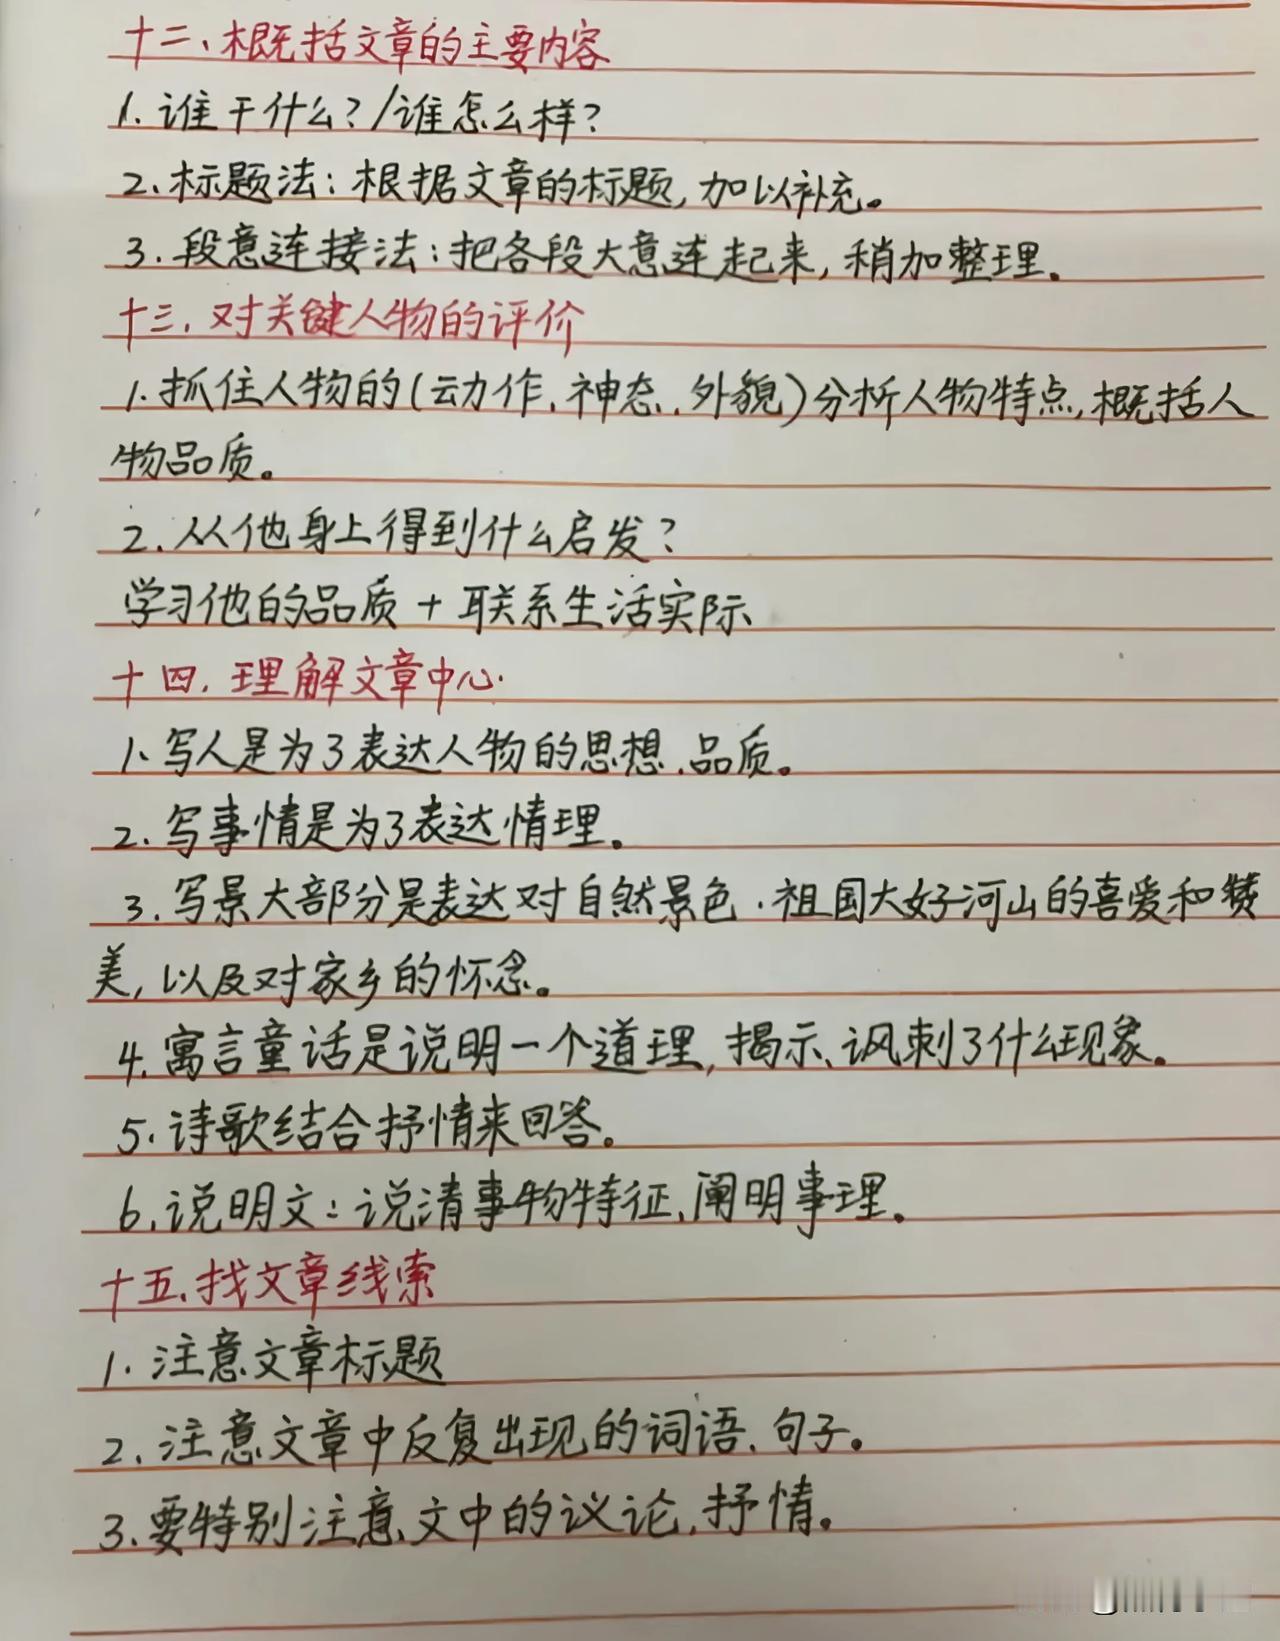 十二、概括文章的主要内容
1.谁干什么?/谁怎么样?
2.标题法:根据文章的标题,加以补充。
3.段意连接法:把各段大意连起来,稍加整理。
十三.对关键人物的评价
1.抓住人物的(动作、神态、外貌)分析人物特点,概括人
物品质。
2.从他身上得到什么启发?
学习他的品质+联系生活实际
十四.理解文章中心.
1、写人是为了表达人物的思想、品质。
2.写事情是为了表达情理。
3.写景大部分是表达对自然景色.祖国大好河山的喜爱和赞
美,以及对家乡的怀念。
4.寓言童话是说明一个道理,揭示、讽刺了什么现象。
5.诗歌结合抒情来回答。
6.说明文:说清事物特征、阐明事理。
十五.找文章线索
1.注意文章标题
2.注意文章中反复出现的词语、句子。
3.要特别注意文中的议论,抒情。